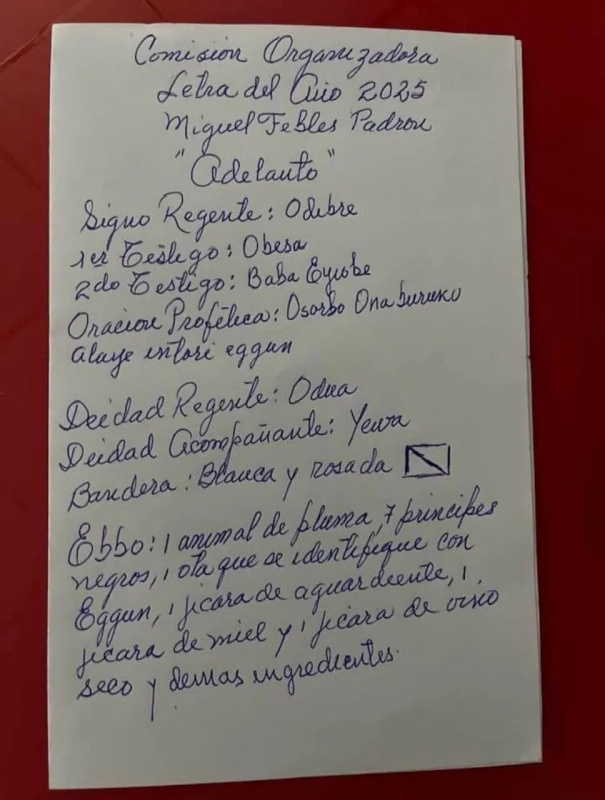 Comisión Organizadora
Letra del Año 2025
Miguel Febles Padron
"Adelanto"
Signo Regente: Odibre
1er Testigo: Obesa
2do Testigo: Baba Eyiobe
Oracion Profética: Osorbo Ona buruku
alaye intori eggun
Deidad Regente: Odua
Deidad Acompañante: Yewa
Bandera: Blanca y rosada
Ebbo: 1 animal de pluma, 7 principes
negros, 1 ota que se identifique con
Eggun, 1 jicara de aguardiente, 1
jicara de miel y 1 jicara de vino
seco y demas ingredientes.